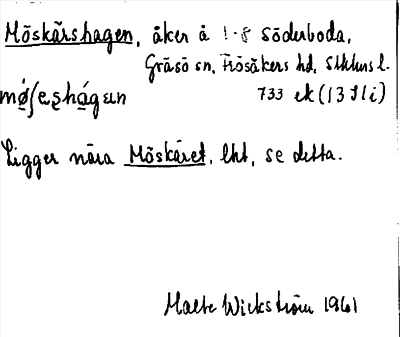 Möskärshagen, åker å 1-8 Söderboda,
Gräsö sn, Frösåkers hd, Sthlms l.
mǿ̨ʃęshágɛn 733 ek (13 I1 i)
Ligger nära Möskäret, lht, se detta.
Malte Wickström 1961